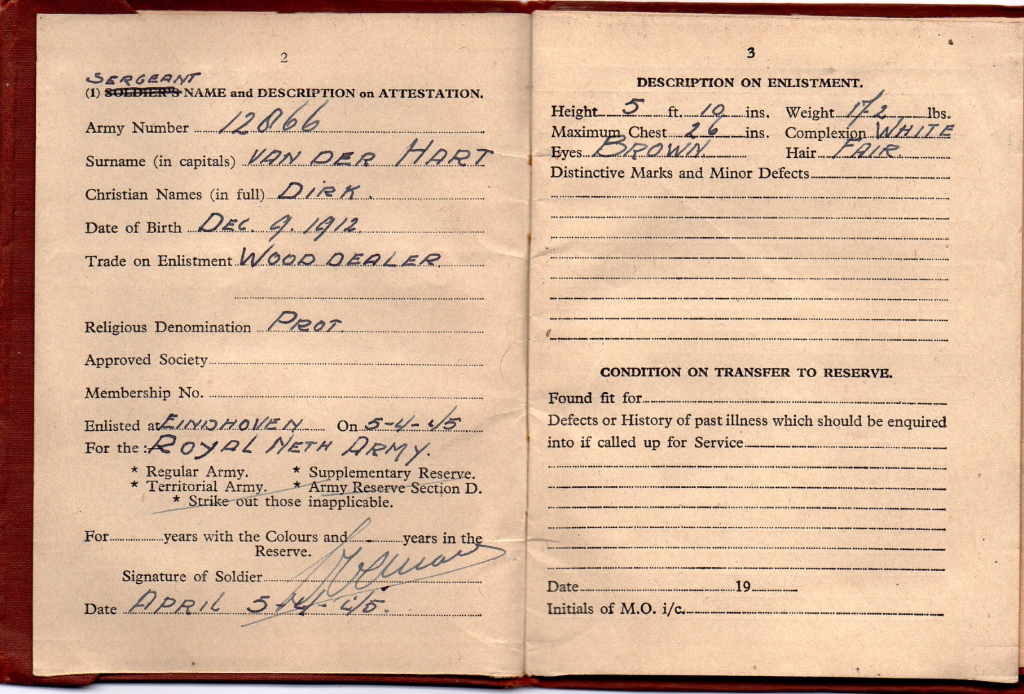 2
SERGEANT
(1) SOLDIER'S NAME and DESCRIPTION on ATTESTATION.
Army Number 12866
Surname (in capitals) VAN DER HART
Christian Names (in full) DIRK.
Date of Birth DEC. 9. 1912
Trade on Enlistment WOOD DEALER
Religious Denomination PROT
Approved Society
Membership No.
Enlisted at EINDHOVEN On 5-4-45
For the : ROYAL NETH ARMY.
* Regular Army. * Supplementary Reserve.
* Territorial Army. * Army Reserve Section D.
* Strike out those inapplicable.
For years with the Colours and years in the
Reserve.
Signature of Soldier
Date APRIL 5-4-45.
3
DESCRIPTION ON ENLISTMENT.
Height 5 ft. 10 ins. Weight 172 lbs.
Maximum Chest 26 ins. Complexion WHITE
Eyes BROWN. Hair FAIR.
Distinctive Marks and Minor Defects
CONDITION ON TRANSFER TO RESERVE.
Found fit for
Defects or History of past illness which should be enquired
into if called up for Service
Date 19
Initials of M.O. i/c.